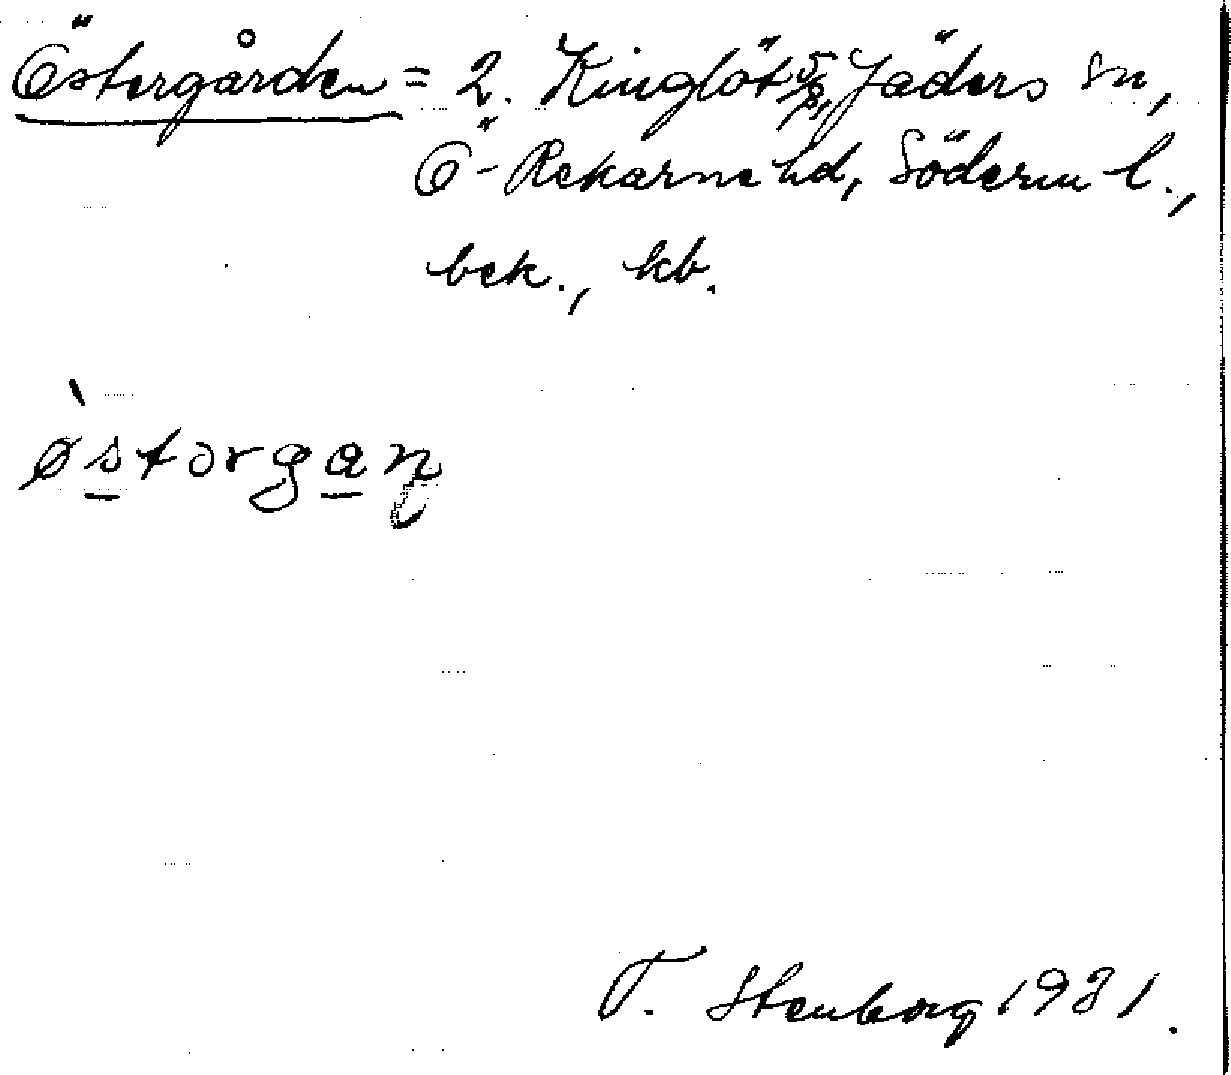 Östergården = 2. Kinglöt 5/8, Jäders sn,
Ö-Rekarne hd, Söderm l.,
bek., kb.
østorgan
T. Stenborg 1931.